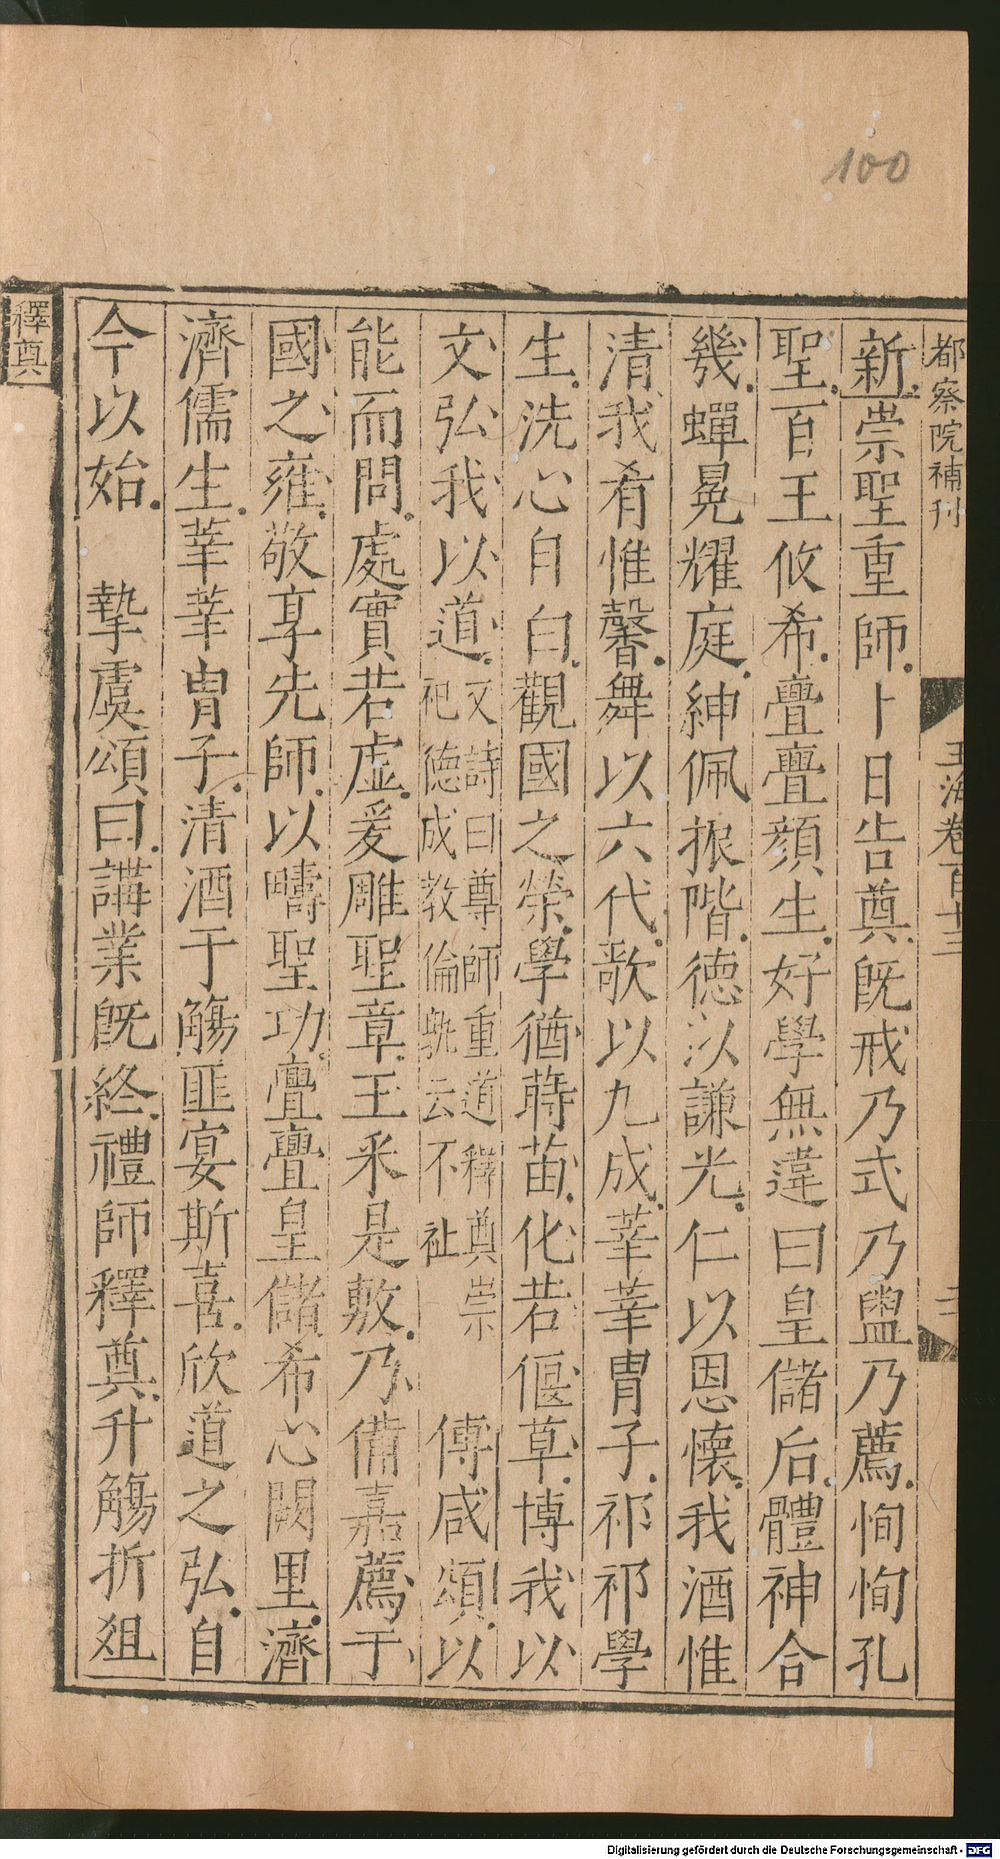 100
都察院補刊
玉海卷百十三
新崇聖重師卜日告奠既戒乃式乃盥乃薦恂恂孔
聖百王攸希亹亹顔生好學無違曰皇儲后體神合
幾蟬晃耀庭紳佩振階德以謙光仁以恩懷我酒惟
清我肴惟馨舞以六代歌以九成莘莘胄子祁祁學
生洗心自白觀國之榮學猶蒔苗化若偃草博我以
文弘我以道文詩曰尊師重道釋奠崇
祀德成教倫毗云不祉
傅咸頌以
能而問處實若虛爰雕聖章王釆是敷乃備嘉薦于
國之雍敬享先師以疇聖功亹亹皇儲希心闕里濟
濟儒生莘莘胄子清酒于觴匪宴斯喜欣道之弘自
今以始　摯虞頌曰講業既終禮師釋奠升觴折俎
釋奠
Digitalisierung gefördert durch die Deutsche Forschungsgemeinschaft - DFG